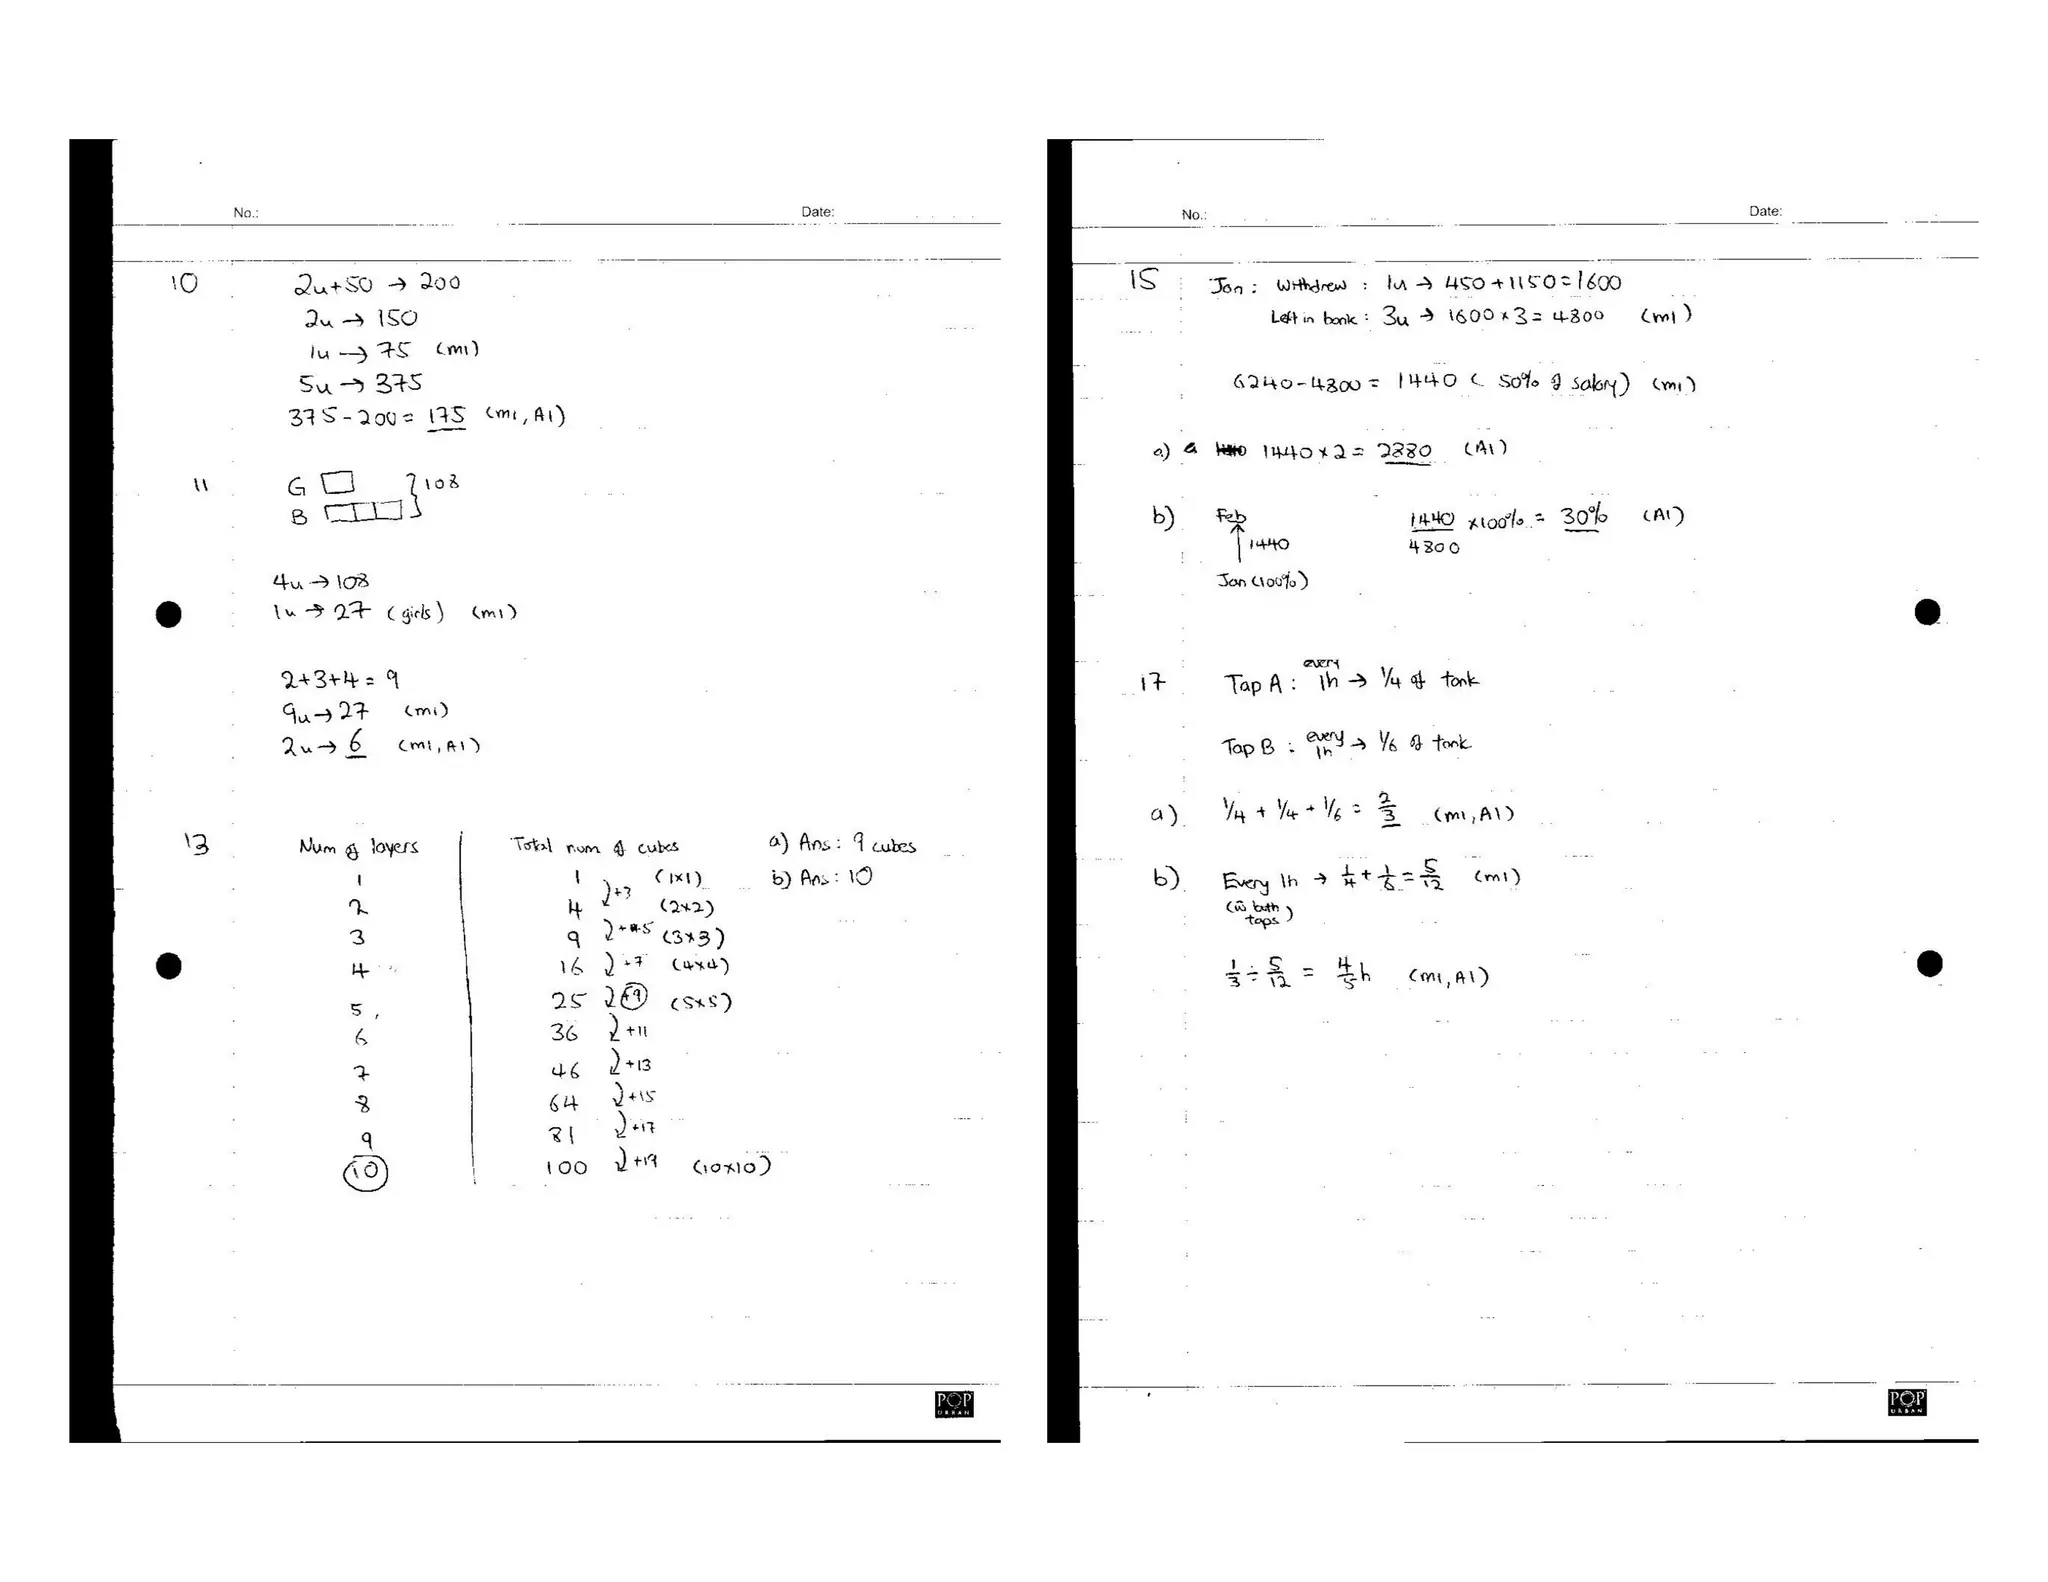 No.: Date:
10 2u+50 → 200
2u → 150
1u → 75 (m1)
5u → 375
375-200 = 175 (m1, A1)
11 G } 108
B
4u → 108
1u → 27 (girls) (m1)
2+3+4 = 9
9u → 27 (m1)
2u → 6 (m1, A1)
13 Num of layers Total num of cubes a) Ans: 9 cubes
1 1 (1x1) b) Ans: 10
+3
2 4 (2x2)
+5
3 9 (3x3)
+7
4 16 (4x4)
+9
5 25 (5x5)
6 36 +11
7 46 +13
8 64 +15
9 81 +17
10 100 +19 (10x10)
POP
URBAN
No.: Date:
15 Jan: Withdrew : 1u → 450 + 1150 = 1600
Left in bank : 3u → 1600 x 3 = 4800 (m1)
6240-4800 = 1440 ( 50% of salary) (m1)
a) 1440 x 2 = 2880 (A1)
b) Feb 1440/4800 x100% = 30% (A1)
1440
Jan (100%)
17 Tap A : every 1h → 1/4 of tank
Tap B : every 1h → 1/6 of tank
a) 1/4 + 1/4 + 1/6 = 2/3 (m1, A1)
b) Every 1h → 1/4 + 1/6 = 5/12 (m1)
(w both taps)
1/3 ÷ 5/12 = 4/5 h (m1, A1)
POP
URBAN